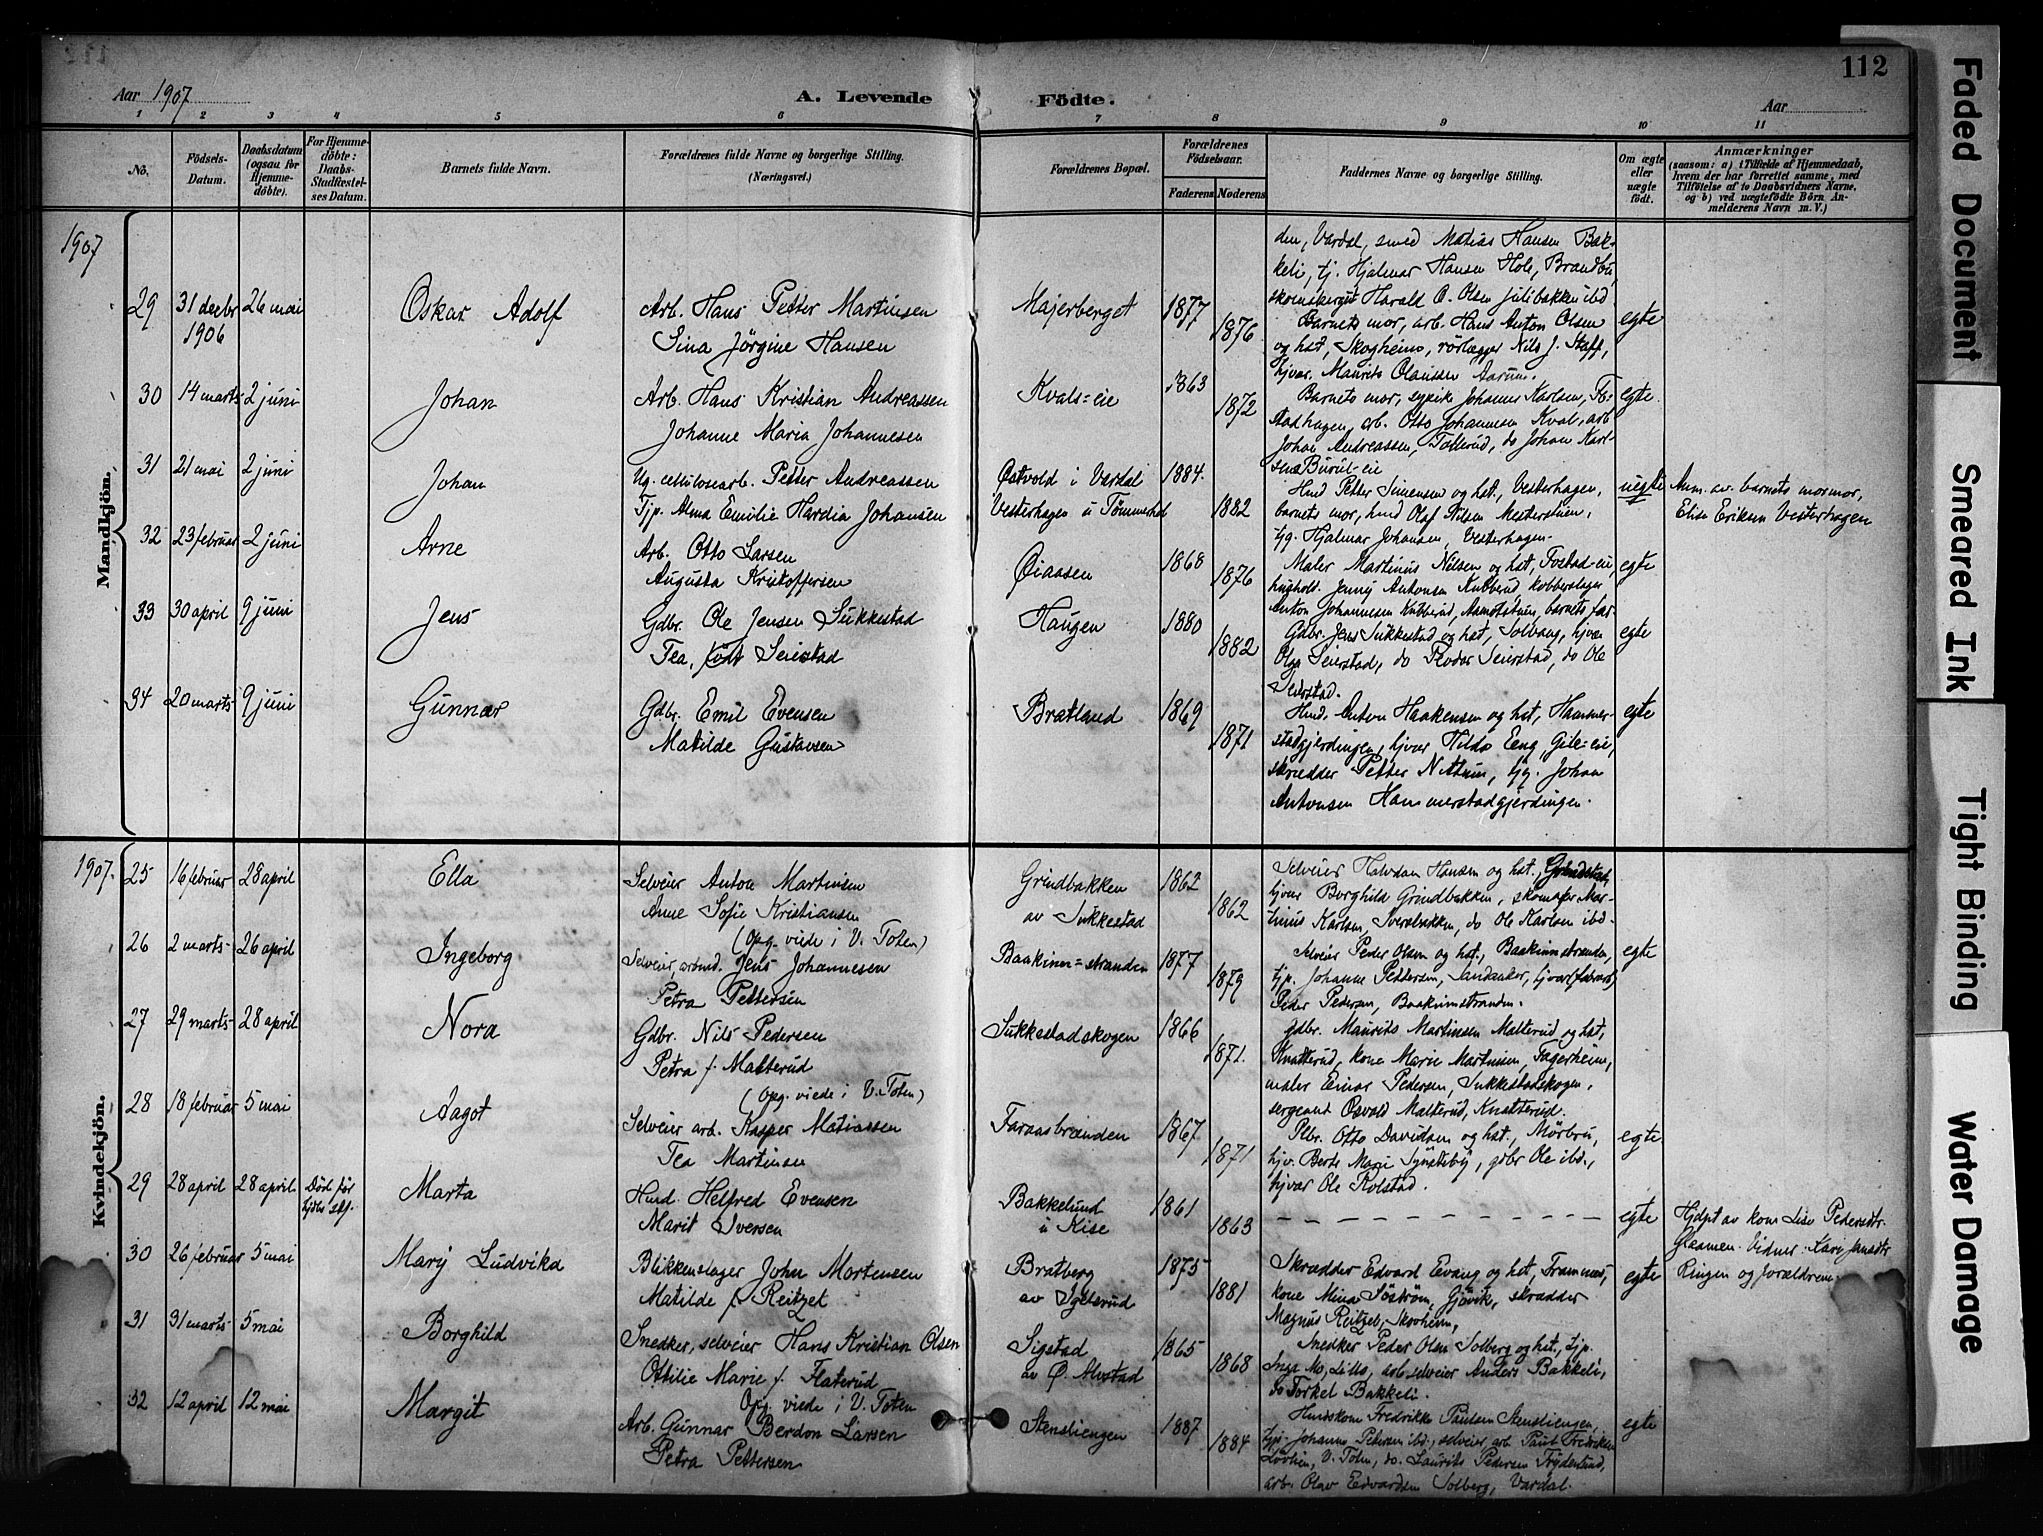 112
Aar 1907
A. Levende Födte.
Aar
1 2 3 4 5 6 7 8 9 10 11
No.
Födsels-Datum.
Daabsdatum (ogsaa for Hjemmedöbte).
For Hjemmedöbte: Daabs-Stadfæstelses Datum.
Barnets fulde Navn.
Forældrenes fulde Navne og borgerlige Stilling. (Næringsvei.)
Forældrenes Bopæl.
Forældrenes Födselsaar.
Faderens Moderens
Faddernes Navne og borgerlige Stilling.
Om ægte eller uægte født.
Anmærkninger
(saasom: a) i Tilfælde af Hjemmedaab, hvem der har forrettet samme, med Tilföielse af to Daabsvidners Navne, og b) ved uægtefödte Börn Anmelderens Navn m. V.)
1907
Mandkjön.
den, Vardal, smed Matias Hansen Bak-
keli, tj. Hjalmar Hansen Hole, Brandbu,
29 31 decbr 1906 26 mai Oskar Adolf
Arb. Hans Petter Martinsen
Sina Jörgine Hansen
Majerberget 1877 1876
Harald O. Olsen
Barnets mor, arb. Hans Anton Olsen
og hst, Skogheim, rörlegger Nils J. Staff,
tjvar. Maurits Olaussen Aarum.
egte
30 14 marts 2 juni Johan
Arb. Hans Kristian Andreassen
Johanne Maria Johannesen
Kvals=eie 1863 1872
Barnets mor, Johannes Karlsen, Fo-
stadhagen, arb. Otto Johannesen Kval, arb
Johan Andreassen, Totterud, do Johan Karl-
sen
egte.
31 21 mai 2 juni Johan
Ug. cellulosearb. Petter Andreassen
Tjp. Alma Emilie Hardia Johansen
Östvold i Vardal
Vesterhagen u Tömmerhol
1884. 1882
Hmd Petter Simensen og hst., Vesterhagen,
barnets mor, hmd Olaf Nilsen Mesterstuen,
tjg. Hjalmar Johansen, Vesterhagen.
uegte
Anm. av barnets mormor,
Elise Eriksen Vesterhagen
32 23 februar 2 juni Arne
Arb. Otto Larsen
Augusta Kristoffersen
Öiaasen 1868 1876
Maler Martinus Nilsen og hst, Fostad-eie,
hushold. Jenny Antonsen Kutberud, kobberslager
Anton Johannesen Kutberud, barnets far
egte
33 30 april 9 juni Jens
Gdbr. Ole Jensen Sukkestad
Tea, född Seierstad
Haugen 1880 1882
Gdbr. Jens Sukkestad og hst, Solvang, hjvær
Olga Seierstad, do Teodor Seierstad, do Ole
Seierstad.
egte
34 20 marts 9 juni Gunnar
Gdbr. Emil Evensen
Matilde Gustavsen
Bratland 1869 1871
Hmd. Anton Haakensen og hst, Hammer-
stadgjerdingen, hjvær Hilda Eeng, Gile=eie,
skrædder Petter Nettum, tjg. Johan
Antonsen Hammerstadgjerdingen.
egte
1907.
Kvindekjön.
25 16 februar 28 april Ella
Selveier Anton Martinsen
Anne Sofie Kristiansen
(Opg. viede i V. Toten)
Grindbakken
av Sukkestad
1862 1862
Selveier Halvdan Hansen og hst.,
hjvær Borghild Grindbakken, skomaker Mar-
tinius Karlsen, Sverebakken, do Ole Karlsen ibd.
26 2 marts 26 april Ingeborg
Selveier, arbmd. Jens Johannesen
Petra Pettersen
Baakinn=stranden 1877 1879
Selveier Peder Olsen og hst., Baakinnstranden,
tjp. Johanne Pettersen, Sandaker,
Peder Pedersen, Baakinnstranden.
egte
27 29 marts 28 april Nora
Gdbr. Nils Pedersen
Petra f. Malterud
(opg. viede i V. Toten)
Sukkestadskogen 1866 1871.
Gdbr. Maurits Martinsen Malterud og hst,
Knatterud, kone Marie Martinsen, Fagerheim,
maler Einar Pedersen, Sukkestadskogen,
sergeant Osvald Malterud, Knatterud.
28 18 februar 5 mai Aagot
Selveier arb. Kasper Matiassen
Tea Martinsen
Faraasbrænden 1867 1871
Plbr. Otto Davidsen og hst., Mörbru,
hjv. Berte Marie Synsteby, gdbr Ole ibd.,
hjvær Ole Kolstad.
egte
29 28 april 28 april Död för kjdes stf. Marta
Husd. Helfred Evensen
Marit Iversen
Bakkelund
u Kise
1861 1863
egte
Hjdpt av kone Lise Pedersdtr.
Glaamen. Vidner: Kari Jansdtr
Ringen og forældrene.
30 26 februar 5 mai Marij Ludvika
Blikkenslager John Mortensen
Matilde f. Reitzel
Bratberg
av
1875 1881
Skrædder Edvard Evang og hst, Framnæs,
kone Mina Söström, Gjövik, skrædder
Magnus Reitzel, Skovheim,
egte
31 31 marts 5 mai Borghild
Snedker, selveier Hans Kristian Olsen
Ottilie Marie f. Flaterud
Opg. viede i V. Toten
Sigstad
av Ö. Alvstad
1865 1868
Snedker Peder Olsen Solberg og hst, tjp.
Inga Mo, Lilla, arb. selveier Anders Bakkeli,
do Torkel Bakkeli.
32 12 april 12 mai Margit
Arb. Gunnar Berdon Larsen
Petra Pettersen
Stensliengen 1887 1884
Husdskone Fredrikke Paulsen Stensliengen,
tjp. Johanne Petersen ibd., selveier arb. Paul Fredriksen
Lövlien, V. Toten, do. Laurits Pedersen Frydenlund,
arb. Olav Edvardsen Solberg, Vardal.
egte
Faded Document
Smeared Ink
Tight Binding
Water Damage